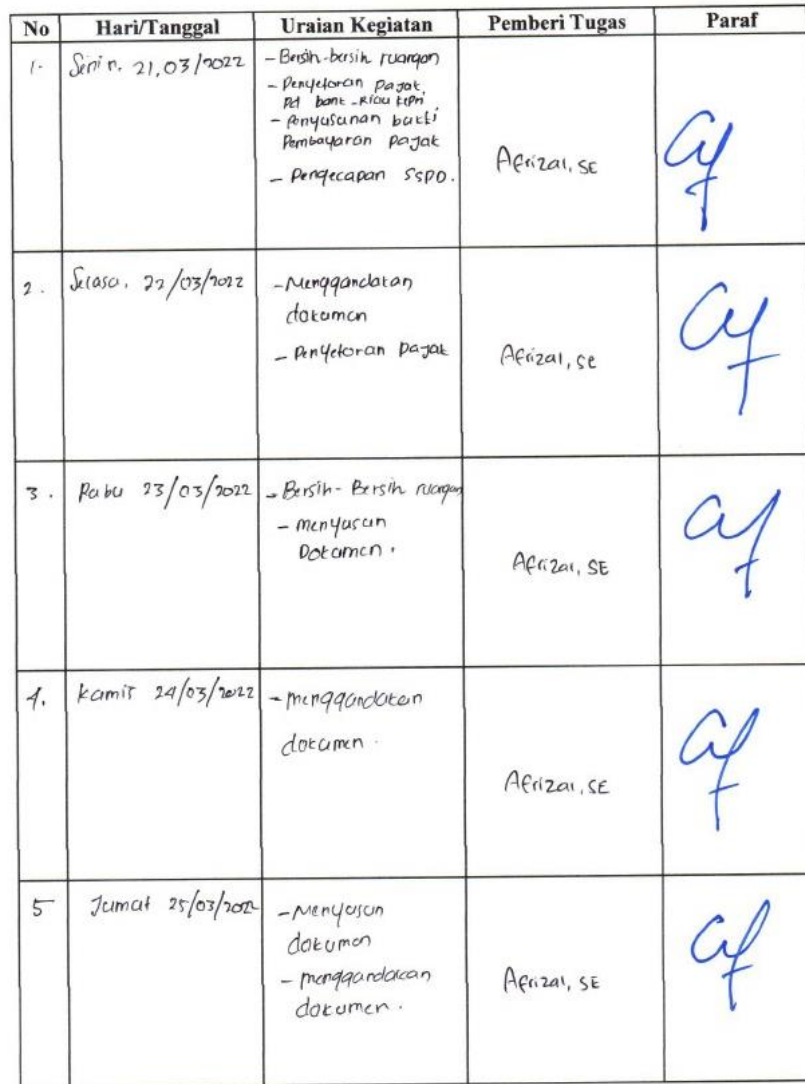 No Hari/Tanggal Uraian Kegiatan Pemberi Tugas Paraf
1. Senin, 21,03/2022 - Bersih-bersih ruangan
- Penyetoran Pajak
Pd bank - Riau Kepri
- Penyusunan bukti
Pembayaran pajak
- Pengecapan SSPD. Afrizal, SE
2. Selasa, 22/03/2022 - Menggandakan
dokumen
- Penyetoran pajak Afrizal, SE
3. Rabu 23/03/2022 - Bersih-Bersih ruangan
- menyusun
Dokumen. Afrizal, SE
4. Kamis 24/03/2022 - menggandakan
dokumen. Afrizal, SE
5 Jumat 25/03/2022 - Menyusun
dokumen
- menggandakan
dokumen. Afrizal, SE